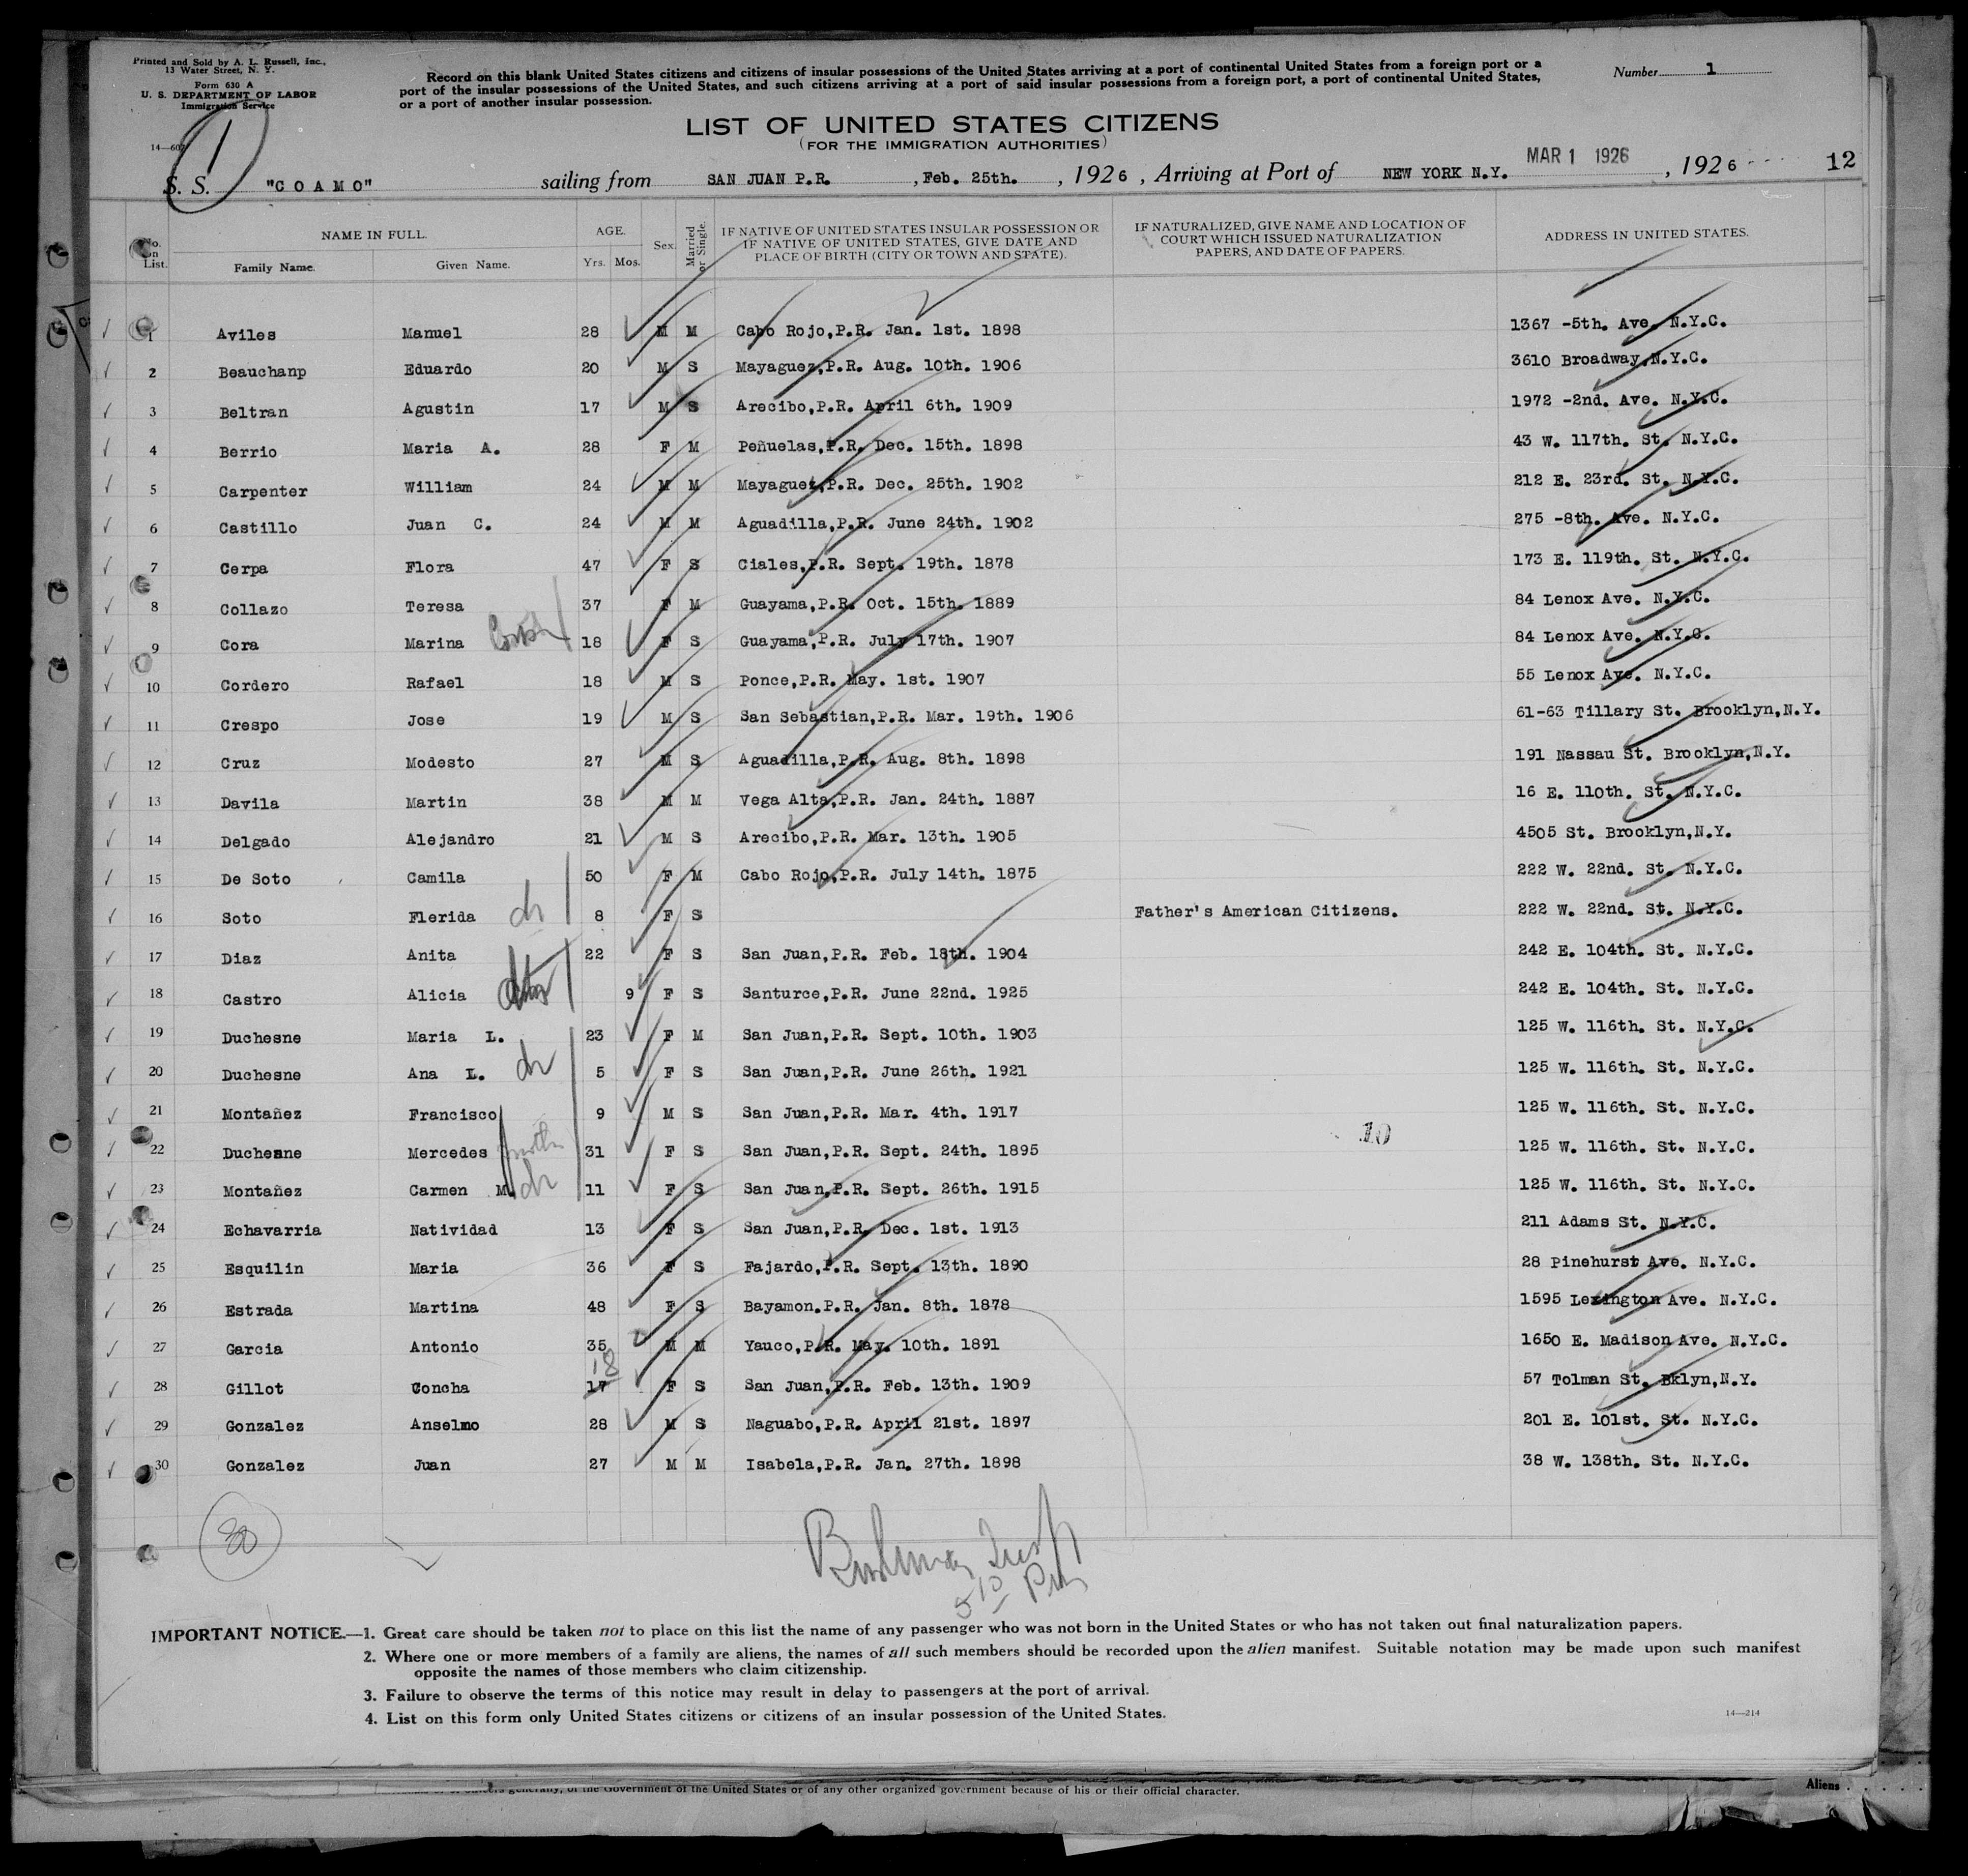 Printed and Sold by A. L. Russell, Inc.,
13 Water Street, N. Y.
Form 630 A
U. S. DEPARTMENT OF LABOR
Immigration Service
14—607
1
Record on this blank United States citizens and citizens of insular possessions of the United States arriving at a port of continental United States from a foreign port or a
port of the insular possessions of the United States, and such citizens arriving at a port of said insular possessions from a foreign port, a port of continental United States,
or a port of another insular possession.
Number 1
LIST OF UNITED STATES CITIZENS
(FOR THE IMMIGRATION AUTHORITIES)
S. S. "COAMO" sailing from SAN JUAN P.R. , Feb. 25th. , 1926 , Arriving at Port of NEW YORK N.Y. MAR 1 1926 , 1926 12
No. on List. NAME IN FULL. Family Name. Given Name. AGE. Yrs. Mos. Sex. Married or Single. IF NATIVE OF UNITED STATES INSULAR POSSESSION OR IF NATIVE OF UNITED STATES, GIVE DATE AND PLACE OF BIRTH (CITY OR TOWN AND STATE). IF NATURALIZED, GIVE NAME AND LOCATION OF COURT WHICH ISSUED NATURALIZATION PAPERS, AND DATE OF PAPERS. ADDRESS IN UNITED STATES.
1 Aviles Manuel 28 M M Cabo Rojo,P.R. Jan. 1st. 1898 1367 -5th. Ave. N.Y.C.
2 Beauchanp Eduardo 20 M S Mayaguez,P.R. Aug. 10th. 1906 3610 Broadway,N.Y.C.
3 Beltran Agustin 17 M S Arecibo,P.R. April 6th. 1909 1972 -2nd. Ave. N.Y.C.
4 Berrio Maria A. 28 F M Peñuelas,P.R. Dec. 15th. 1898 43 W. 117th. St. N.Y.C.
5 Carpenter William 24 M M Mayaguez,P.R. Dec. 25th. 1902 212 E. 23rd. St. N.Y.C.
6 Castillo Juan C. 24 M M Aguadilla,P.R. June 24th. 1902 275 -8th. Ave. N.Y.C.
7 Cerpa Flora 47 F S Ciales,P.R. Sept. 19th. 1878 173 E. 119th. St. N.Y.C.
8 Collazo Teresa 37 F M Guayama,P.R. Oct. 15th. 1889 84 Lenox Ave. N.Y.C.
9 Cora Marina 18 F S Guayama,P.R. July 17th. 1907 84 Lenox Ave. N.Y.C.
10 Cordero Rafael 18 M S Ponce,P.R. May. 1st. 1907 55 Lenox Ave. N.Y.C.
11 Crespo Jose 19 M S San Sebastian,P.R. Mar. 19th. 1906 61-63 Tillary St. Brooklyn,N.Y.
12 Cruz Modesto 27 M S Aguadilla,P.R. Aug. 8th. 1898 191 Nassau St. Brooklyn,N.Y.
13 Davila Martin 38 M M Vega Alta,P.R. Jan. 24th. 1887 16 E. 110th. St. N.Y.C.
14 Delgado Alejandro 21 M S Arecibo,P.R. Mar. 13th. 1905 4505 St. Brooklyn,N.Y.
15 De Soto Camila 50 F M Cabo Rojo,P.R. July 14th. 1875 222 W. 22nd. St. N.Y.C.
16 Soto Flerida 8 F S Father's American Citizens. 222 W. 22nd. St. N.Y.C.
17 Diaz Anita 22 F S San Juan,P.R. Feb. 18th. 1904 242 E. 104th. St. N.Y.C.
18 Castro Alicia 9 F S Santurce,P.R. June 22nd. 1925 242 E. 104th. St. N.Y.C.
19 Duchesne Maria L. 23 F M San Juan,P.R. Sept. 10th. 1903 125 W. 116th. St. N.Y.C.
20 Duchesne Ana L. 5 F S San Juan,P.R. June 26th. 1921 125 W. 116th. St. N.Y.C.
21 Montañez Francisco 9 M S San Juan,P.R. Mar. 4th. 1917 125 W. 116th. St. N.Y.C.
10
22 Duchesne Mercedes 31 F S San Juan,P.R. Sept. 24th. 1895 125 W. 116th. St. N.Y.C.
23 Montañez Carmen M. 11 F S San Juan,P.R. Sept. 26th. 1915 125 W. 116th. St. N.Y.C.
24 Echavarria Natividad 13 F S San Juan,P.R. Dec. 1st. 1913 211 Adams St. N.Y.C.
25 Esquilin Maria 36 F S Fajardo,P.R. Sept. 13th. 1890 28 Pinehurst Ave. N.Y.C.
26 Estrada Martina 48 F S Bayamon.P.R. Jan. 8th. 1878 1595 Lexington Ave. N.Y.C.
27 Garcia Antonio 35 M M Yauco,P.R. May. 10th. 1891 1650 E. Madison Ave. N.Y.C.
18
28 Gillot Concha 17 F S San Juan,P.R. Feb. 13th. 1909 57 Tolman St. Bklyn,N.Y.
29 Gonzalez Anselmo 28 M S Naguabo,P.R. April 21st. 1897 201 E. 101st. St. N.Y.C.
30 Gonzalez Juan 27 M M Isabela,P.R. Jan. 27th. 1898 38 W. 138th. St. N.Y.C.
30
5 10 Pm
IMPORTANT NOTICE.—1. Great care should be taken not to place on this list the name of any passenger who was not born in the United States or who has not taken out final naturalization papers.
2. Where one or more members of a family are aliens, the names of all such members should be recorded upon the alien manifest. Suitable notation may be made upon such manifest
opposite the names of those members who claim citizenship.
3. Failure to observe the terms of this notice may result in delay to passengers at the port of arrival.
4. List on this form only United States citizens or citizens of an insular possession of the United States.
14—214
generally, of the Government of the United States or of any other organized government because of his or their official character.
Aliens